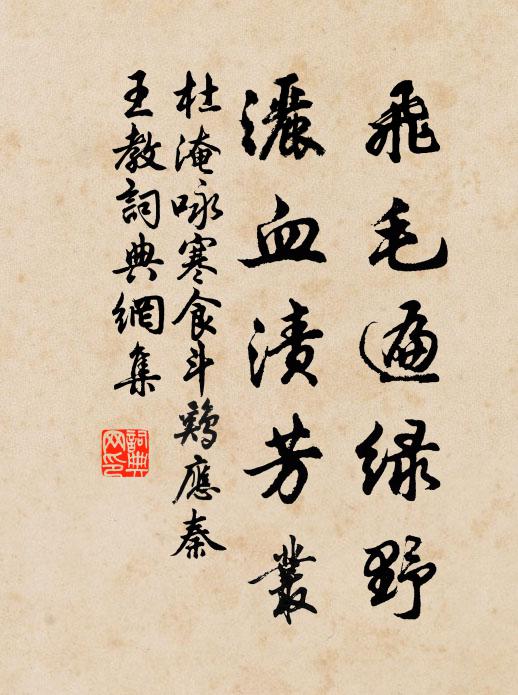 飛毛遍绿野
灑血漬芳叢
杜淹咏寒食斗鷄應秦
王教詞典網集
詞典网印